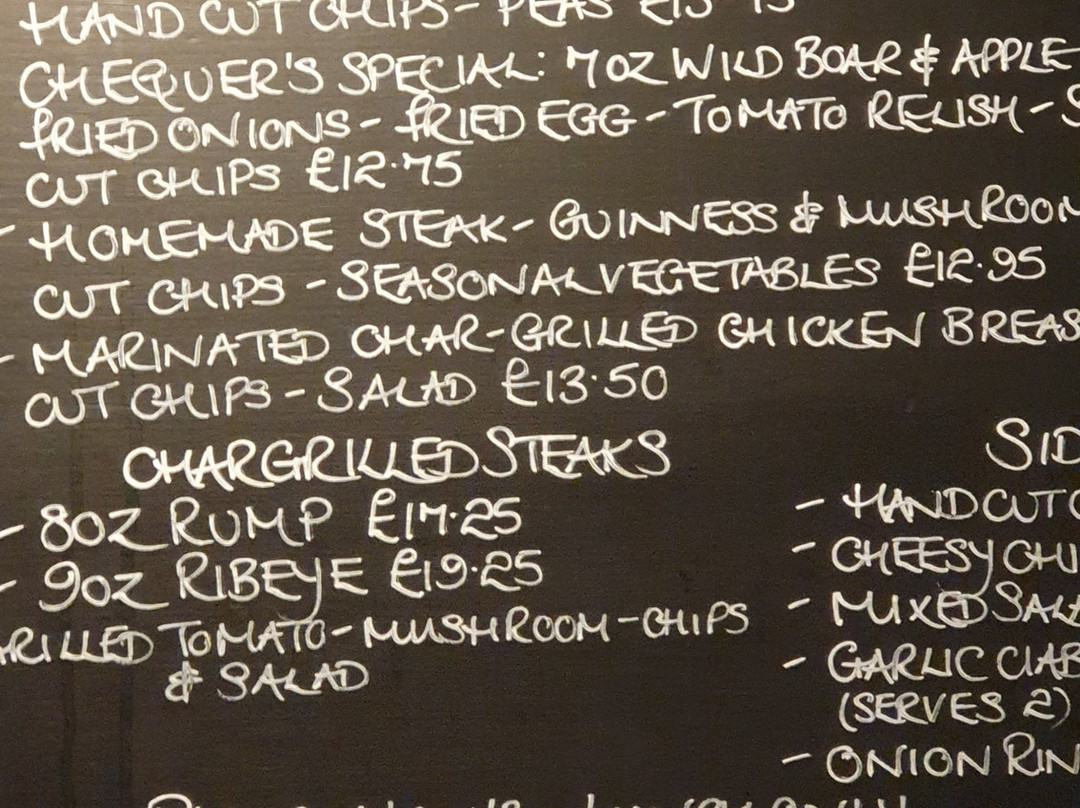 HAND CUT CHIPS - PEAS
CHEQUER'S SPECIAL: 7OZ WILD BOAR & APPLE
FRIED ONIONS - FRIED EGG - TOMATO RELISH -
CUT CHIPS £12.75
- HOMEMADE STEAK - GUINNESS & MUSHROOM
CUT CHIPS - SEASONAL VEGETABLES £12.95
- MARINATED CHAR-GRILLED CHICKEN BREAS
CUT CHIPS - SALAD £13.50
CHARGRILLED STEAKS
- 8OZ RUMP £17.25
- 9OZ RIBEYE £19.25
RILLED TOMATO - MUSHROOM - CHIPS
& SALAD
SID
- HAND CUT C
- CHEESY CHI
- MIXED SALA
- GARLIC CIAB
(SERVES 2)
- ONION RIN